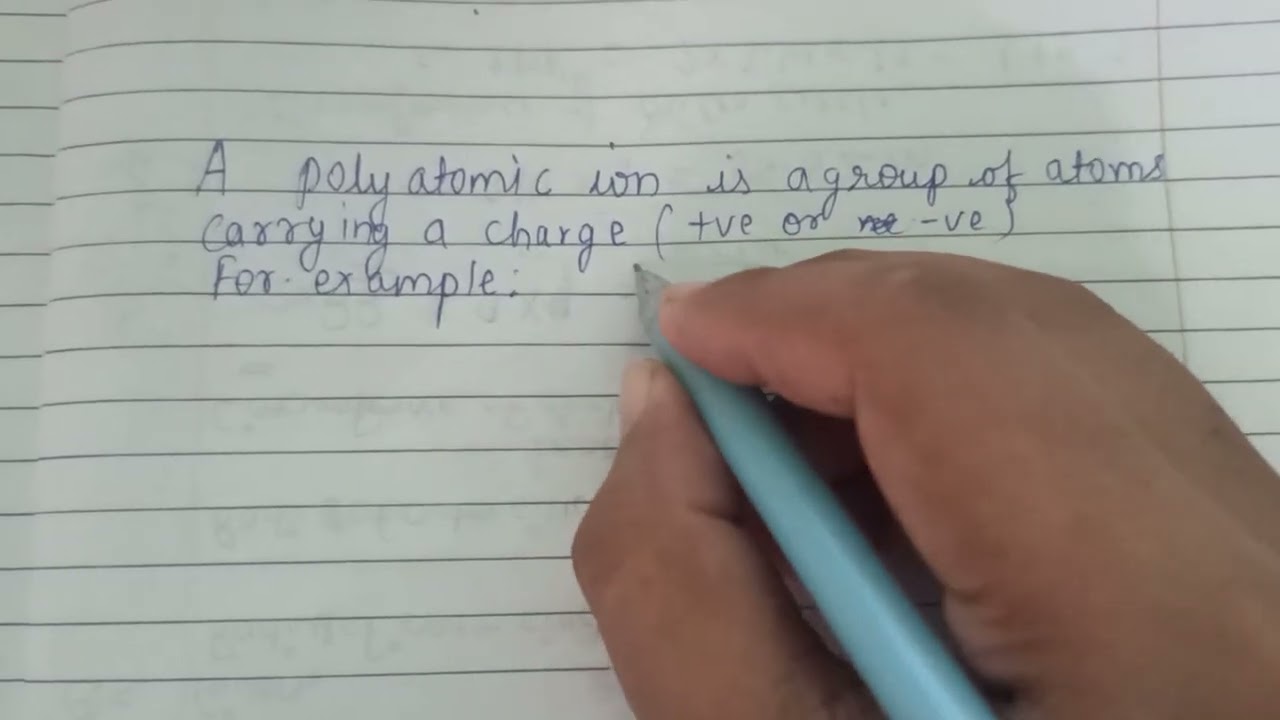 A polyatomic ion is a group of atoms
carrying a charge (+ve or -ve)
For example: